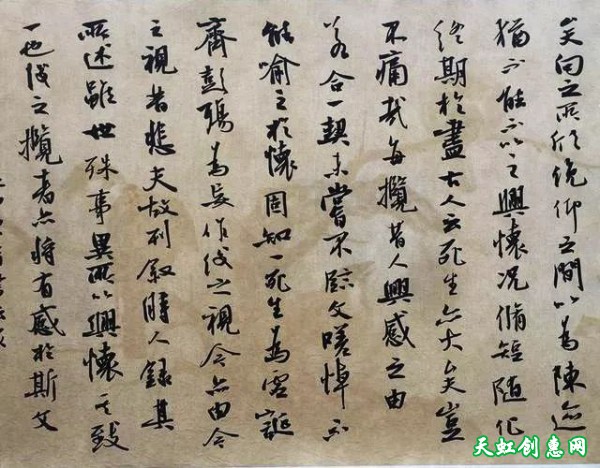 矣向之所欣俛仰之間以為陳迹
猶不能不以之興懷况脩短随化
終期於盡古人云死生亦大矣豈
不痛哉每攬昔人興感之由
若合一契未嘗不臨文嗟悼不
能喻之於懷固知一死生為虛誕
齊彭殤為妄作後之視今亦由今
之視昔悲夫故列叙時人録其
所述雖世殊事異所以興懷其致
一也後之攬者亦將有感於斯文
天虹创惠网